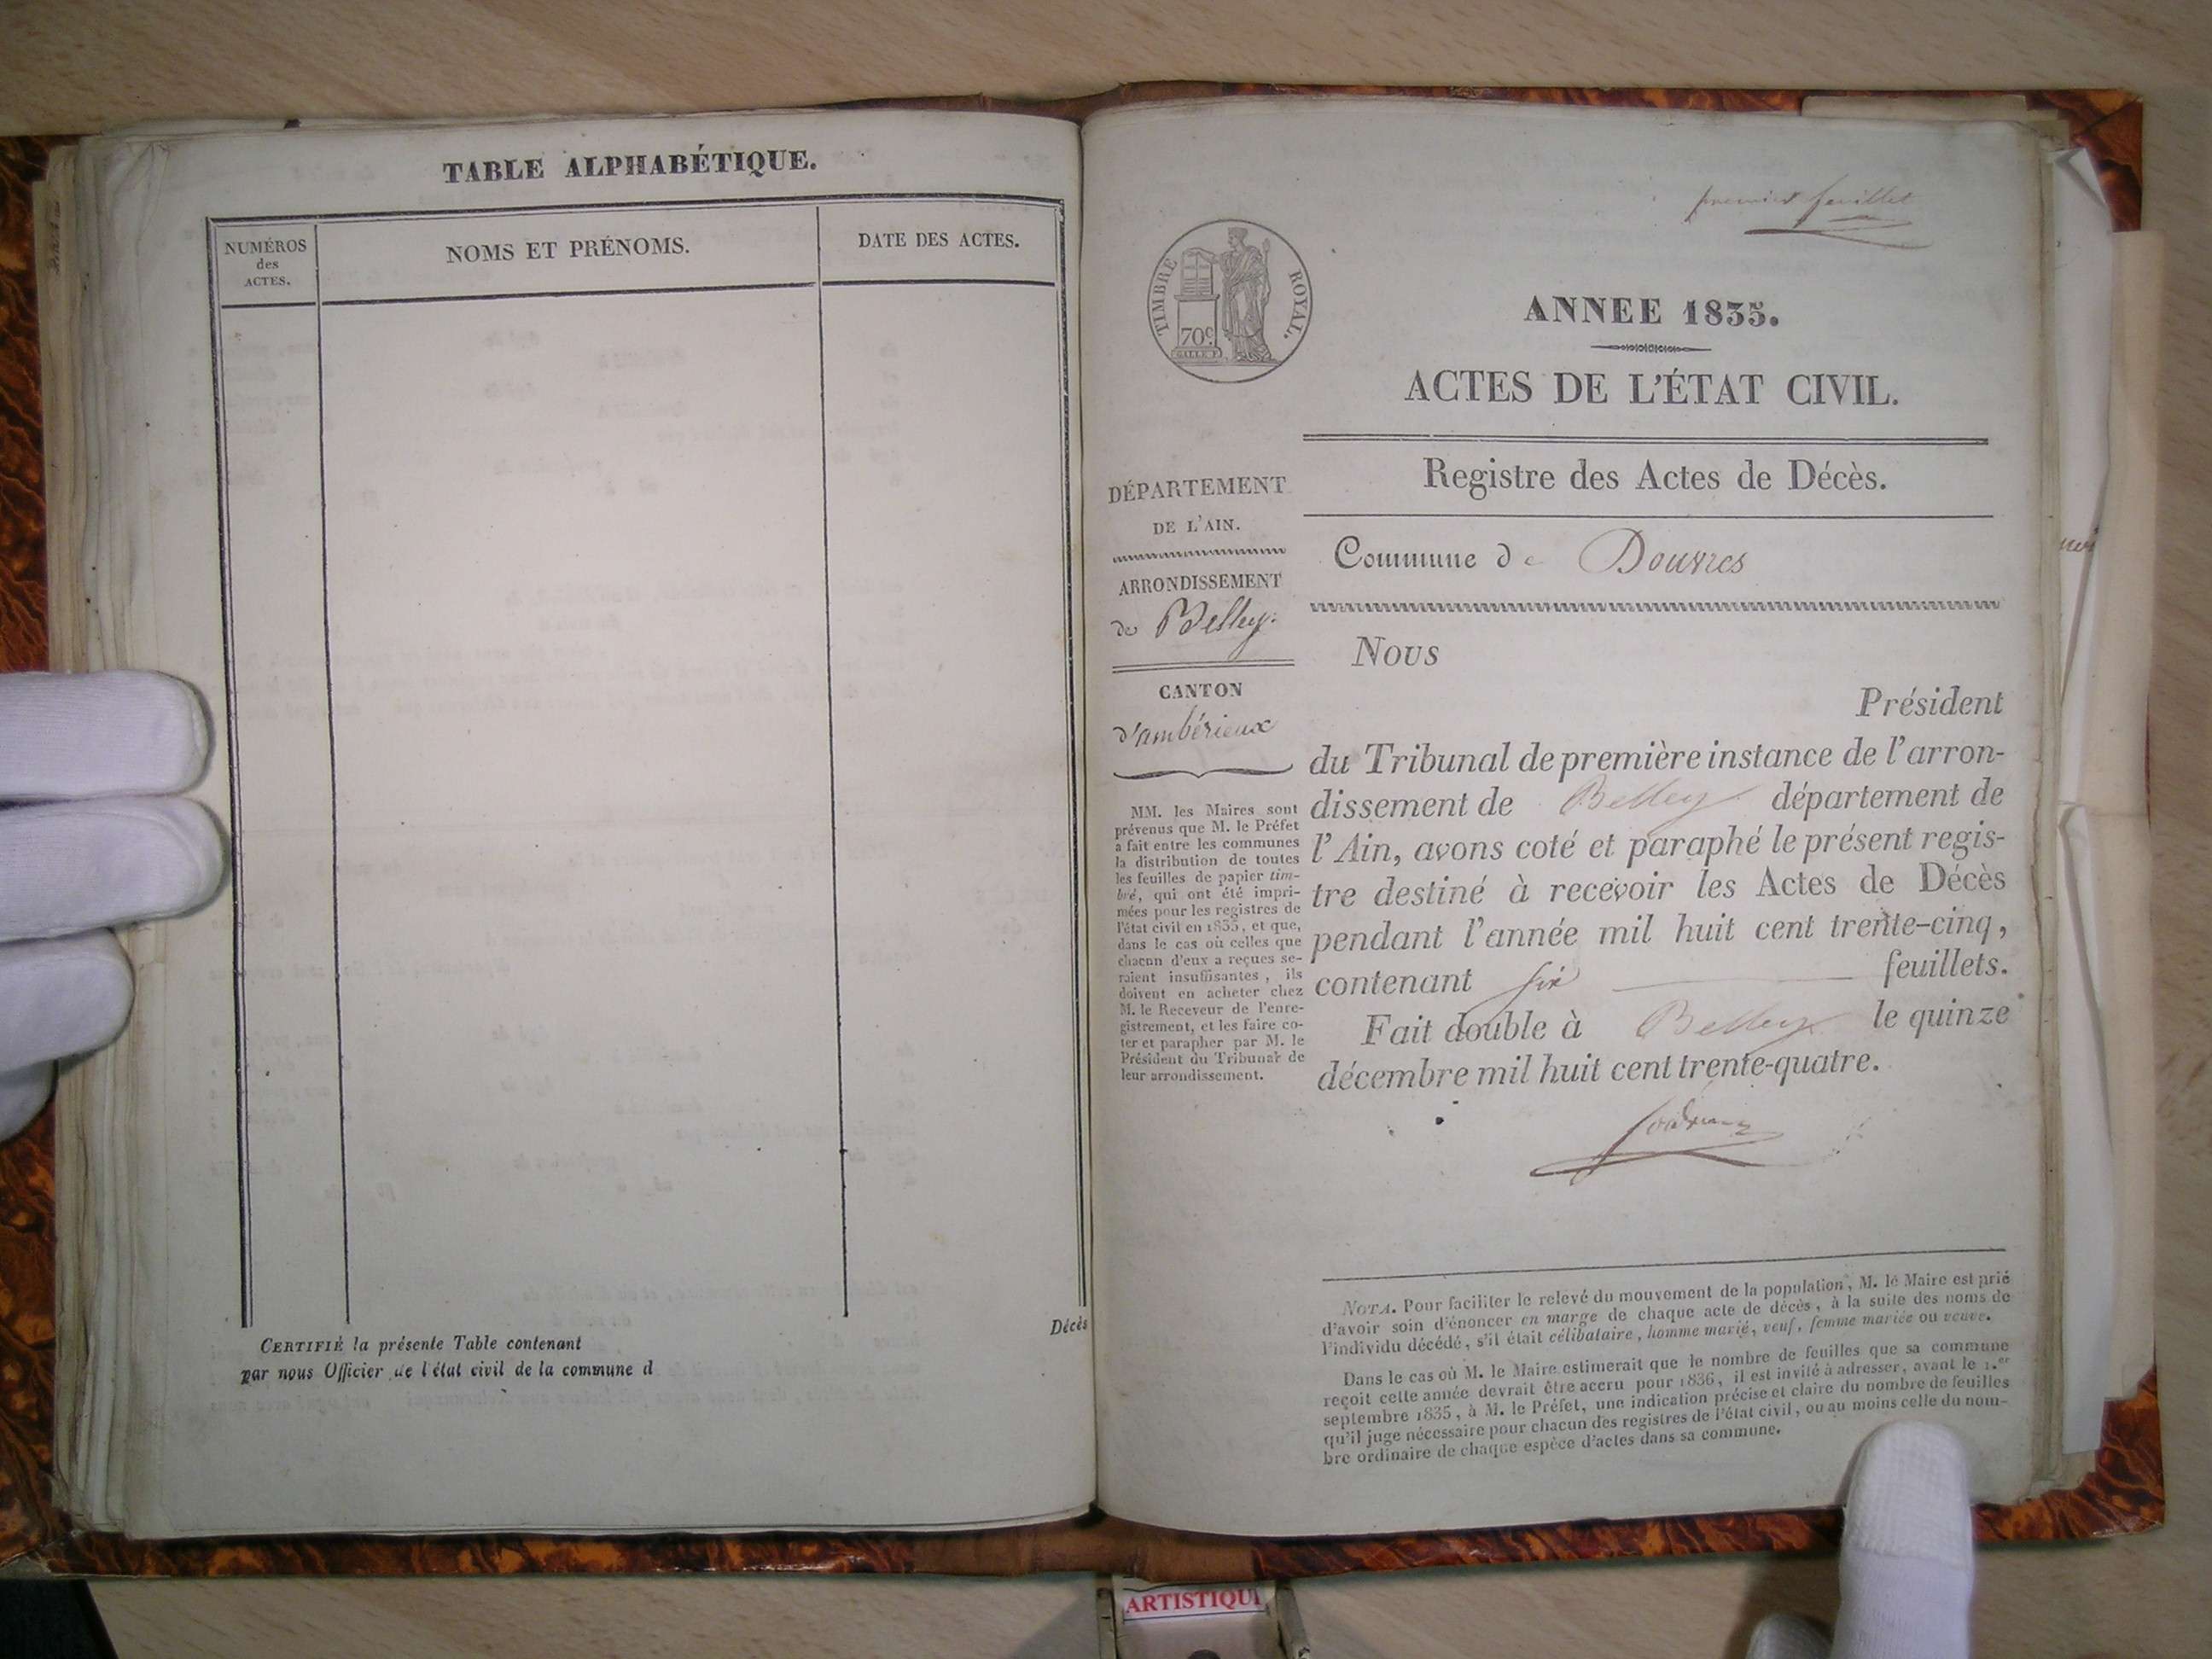 TABLE ALPHABÉTIQUE.
NUMÉROS
des
ACTES.
NOMS ET PRÉNOMS.
DATE DES ACTES.
CERTIFIÉ la présente Table contenant
par nous Officier de l'état civil de la commune d
Décès
premier feuillet
TIMBRE ROYAL.
70c
ANNEE 1835.
ACTES DE L'ÉTAT CIVIL.
Registre des Actes de Décès.
Commune de Douvres
DÉPARTEMENT
DE L'AIN.
ARRONDISSEMENT
de Belley.
CANTON
d'ambérieux
MM. les Maires sont
prévenus que M. le Préfet
a fait entre les communes
la distribution de toutes
les feuilles de papier tim-
bré, qui ont été impri-
mées pour les registres de
l'état civil en 1835, et que,
dans le cas où celles que
chacun d'eux a reçues se-
raient insuffisantes, ils
doivent en acheter chez
M. le Receveur de l'enre-
gistrement, et les faire co-
ter et parapher par M. le
Président du Tribunal de
leur arrondissement.
Nous
Président
du Tribunal de première instance de l'arron-
dissement de Belley département de
l'Ain, avons coté et paraphé le présent regis-
tre destiné à recevoir les Actes de Décès
pendant l'année mil huit cent trente-cinq,
contenant six feuillets.
Fait double à Belley le quinze
décembre mil huit cent trente-quatre.
NOTA. Pour faciliter le relevé du mouvement de la population, M. le Maire est prié
d'avoir soin d'énoncer en marge de chaque acte de décès, à la suite des noms de
l'individu décédé, s'il était célibataire, homme marié, veuf, femme mariée ou veuve.
Dans le cas où M. le Maire estimerait que le nombre de feuilles que sa commune
reçoit cette année devrait être accru pour 1836, il est invité à adresser, avant le 1.er
septembre 1835, à M. le Préfet, une indication précise et claire du nombre de feuilles
qu'il juge nécessaire pour chacun des registres de l'état civil, ou au moins celle du nom-
bre ordinaire de chaque espèce d'actes dans sa commune.
ARTISTIQU